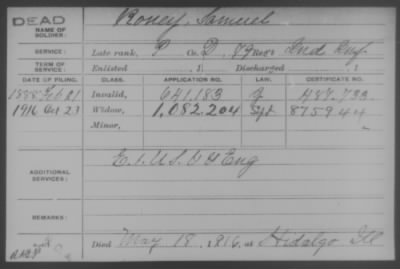 DEAD
NAME OF SOLDIER: Roney, Samuel
SERVICE: Late rank, P Co. D, 79 Reg't Ind. Inf.
TERM OF SERVICE: Enlisted 1 Discharged 1
DATE OF FILING. CLASS. APPLICATION NO. LAW. CERTIFICATE NO.
1888 Feb 21 Invalid, 641.183 487.733
1916 Oct 23 Widow, 1.082.204 Sept 8759 44
Minor,
ADDITIONAL SERVICES: E. 1. U.S. V V Eng
REMARKS:
Died May 18, 1816, at Hidalgo Ill